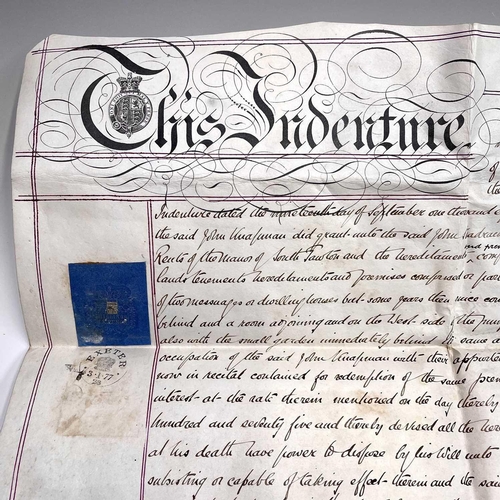 This Indenture
of
the
Indenture dated the nineteenth day of September one thousand
the said John Knapman did grant unto the said John
and
Rents of the Manor of South Tawton and the hereditaments
lands tenements hereditaments and premises comprised or
of two messuages or dwelling houses but some years then since
behind and a room adjoining and on the West side the
also with the small garden immediately behind the same
occupation of the said John Knapman with their
now in recital contained for redemption of the same
interest at the rate therein mentioned on the day thereby
hundred and seventy five and thereby devised all the
at his death have power to dispose by his Will unto
subsisting or capable of taking effect therein and the said
EXETER
77